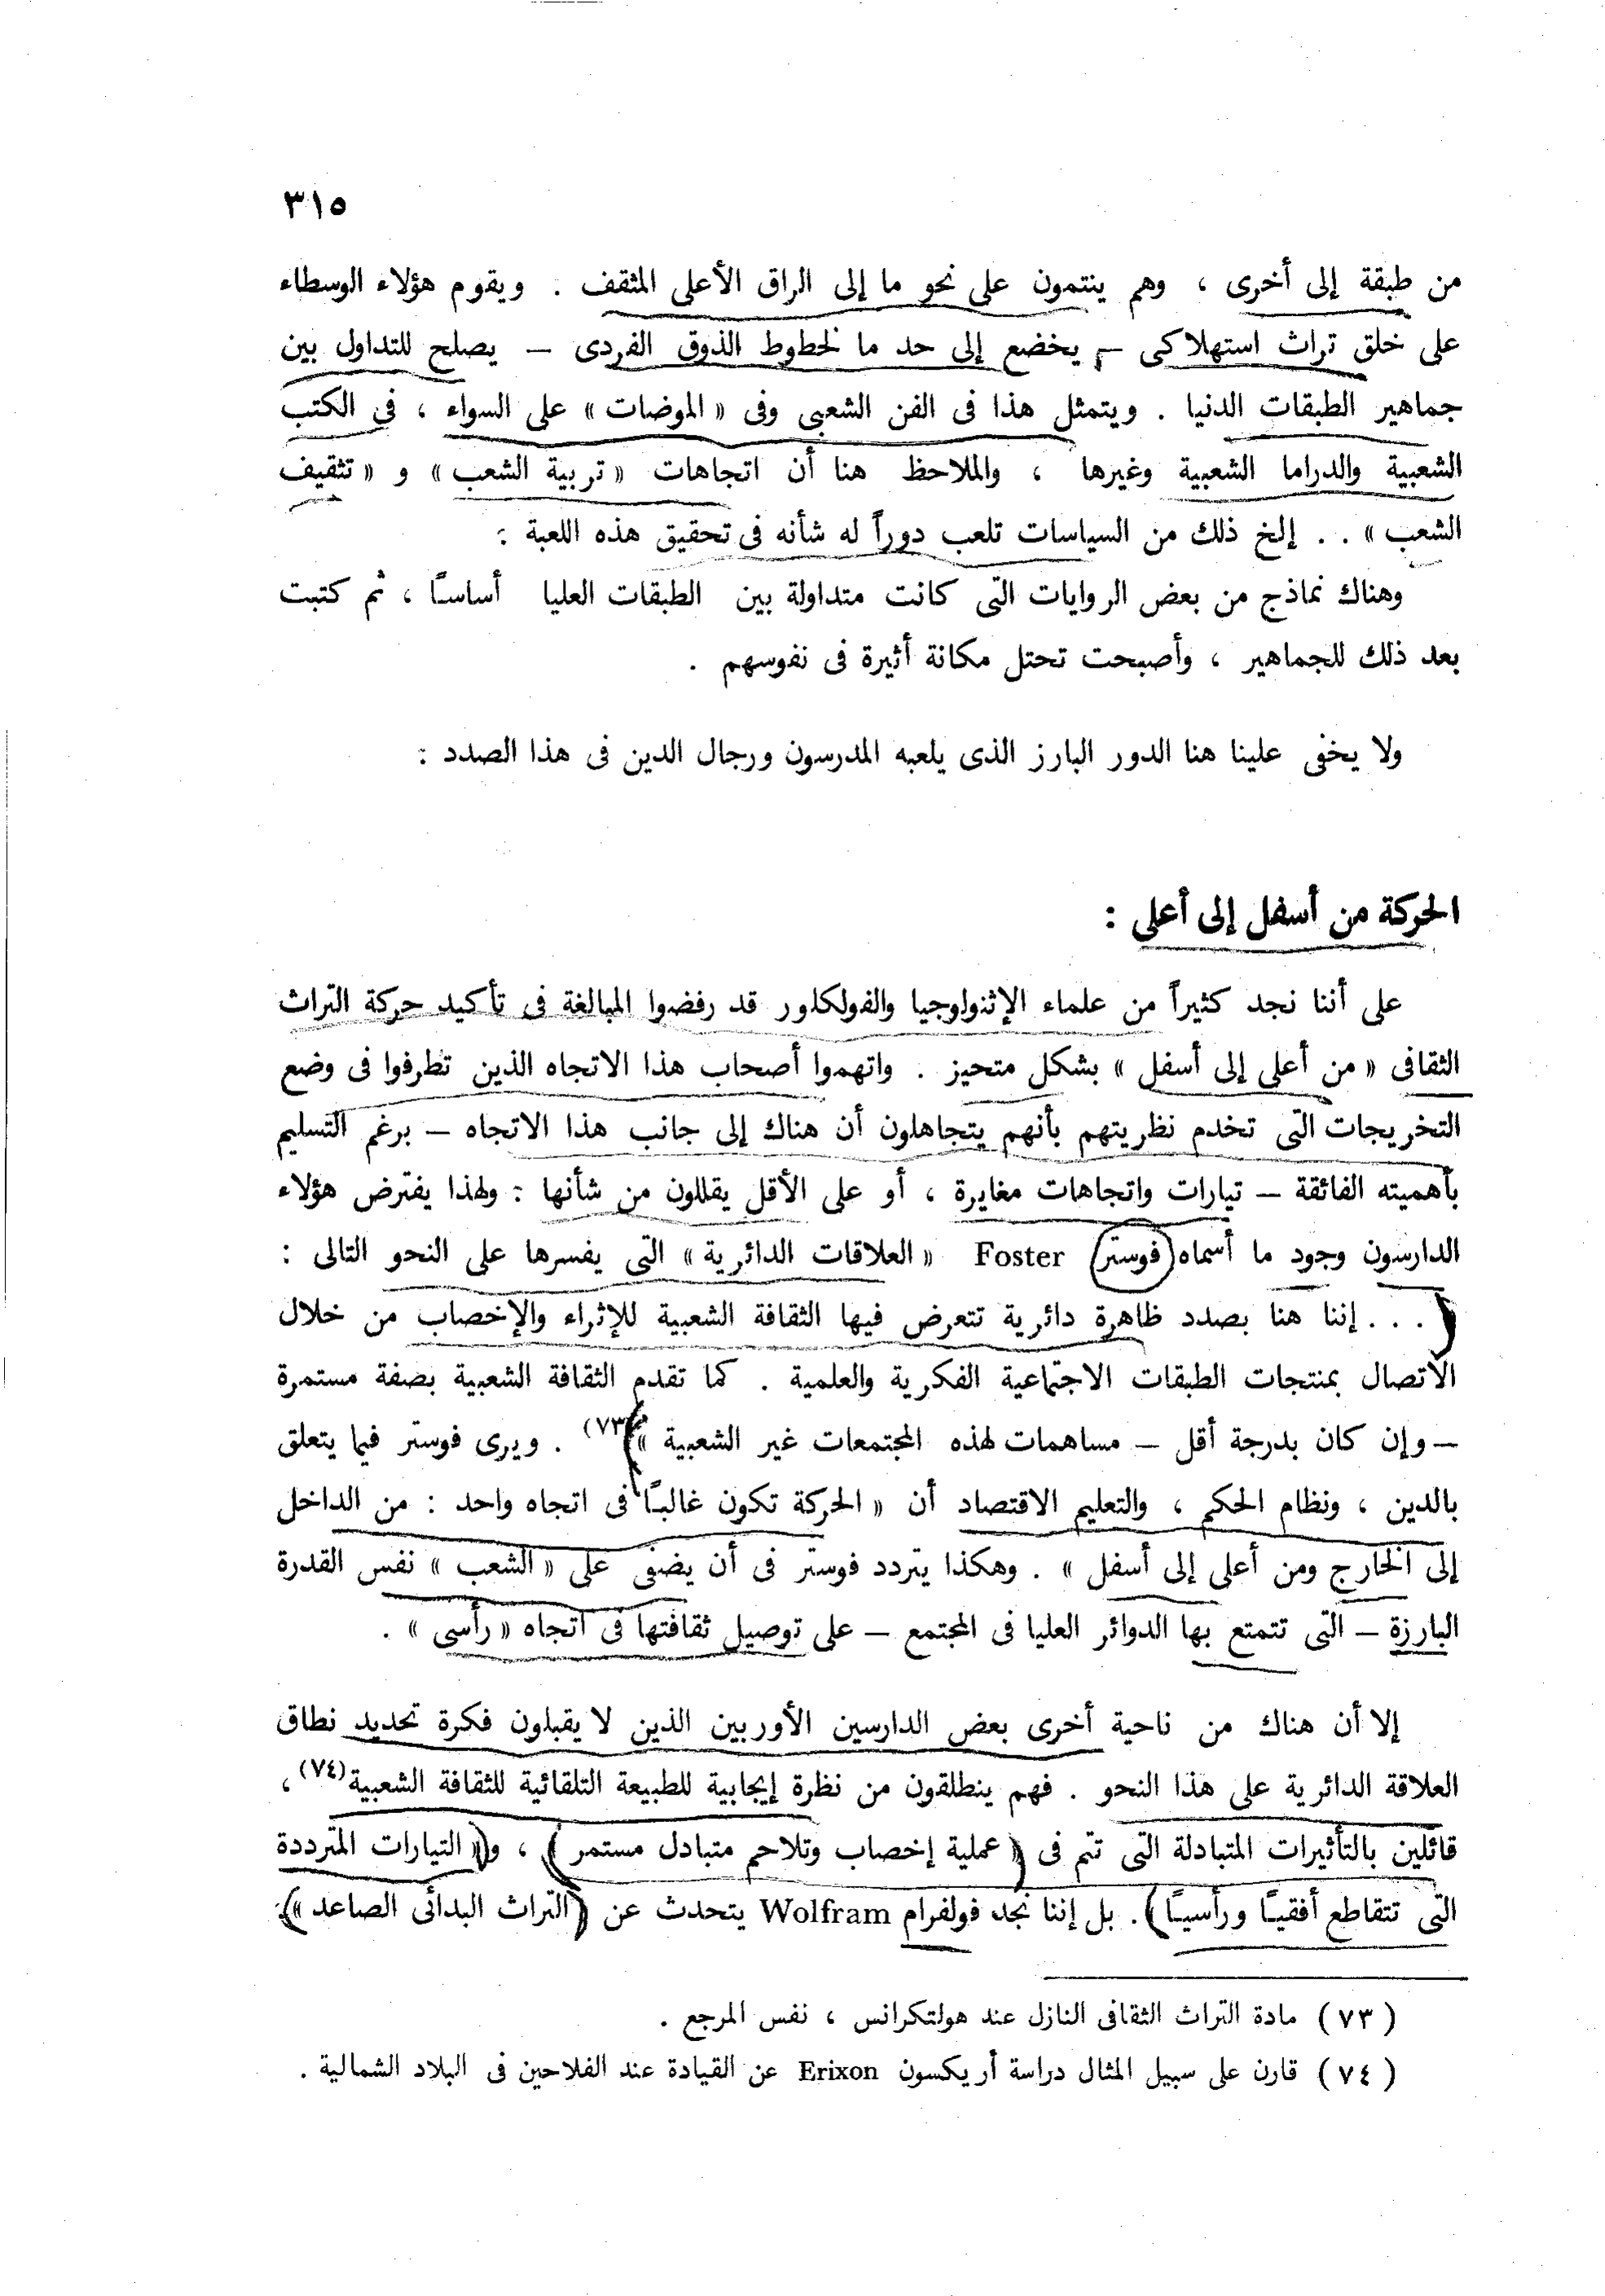 ٣١٥
من طبقة إلى أخرى ، وهم ينتمون على نحو ما إلى الراق الأعلى المثقف . ويقوم هؤلاء الوسطاء
على خلق تراث استهلاكى – يخضع إلى حد ما لخطوط الذوق الفردى – يصلح للتداول بين
جماهير الطبقات الدنيا . ويتمثل هذا فى الفن الشعبى وفى « الموضات » على السواء ، فى الكتب
الشعبية والدراما الشعبية وغيرها ، والملاحظ هنا أن اتجاهات « تربية الشعب » و « تثقيف
الشعب » . . إلخ ذلك من السياسات تلعب دوراً له شأنه فى تحقيق هذه اللعبة :
وهناك نماذج من بعض الروايات التى كانت متداولة بين الطبقات العليا أساسًا ، ثم كتبت
بعد ذلك للجماهير ، وأصبحت تحتل مكانة أثيرة فى نفوسهم .
ولا يخفى علينا هنا الدور البارز الذى يلعبه المدرسون ورجال الدين فى هذا الصدد :
الحركة من أسفل إلى أعلى :
على أننا نجد كثيراً من علماء الإثنولوجيا والفولكلور قد رفضوا المبالغة فى تأكيد حركة التراث
الثقافى « من أعلى إلى أسفل » بشكل متحيز . واتهموا أصحاب هذا الاتجاه الذين تطرفوا فى وضع
التخريجات التى تخدم نظريتهم بأنهم يتجاهلون أن هناك إلى جانب هذا الاتجاه – برغم التسليم
بأهميته الفائقة – تيارات واتجاهات مغايرة ، أو على الأقل يقللون من شأنها : ولهذا يفترض هؤلاء
الدارسون وجود ما أسماه فوستر Foster « العلاقات الدائرية » التى يفسرها على النحو التالى :
« . . . إننا هنا بصدد ظاهرة دائرية تتعرض فيها الثقافة الشعبية للإثراء والإخصاب من خلال
الاتصال بمنتجات الطبقات الاجتماعية الفكرية والعلمية . كما تقدم الثقافة الشعبية بصفة مستمرة
– وإن كان بدرجة أقل – مساهمات لهذه المجتمعات غير الشعبية »(٧٣) . ويرى فوستر فيما يتعلق
بالدين ، ونظام الحكم ، والتعليم الاقتصاد أن « الحركة تكون غالبًا فى اتجاه واحد : من الداخل
إلى الخارج ومن أعلى إلى أسفل » . وهكذا يتردد فوستر فى أن يضفى على « الشعب » نفس القدرة
البارزة – التى تتمتع بها الدوائر العليا فى المجتمع – على توصيل ثقافتها فى اتجاه « رأسى » .
إلا أن هناك من ناحية أخرى بعض الدارسين الأوربيين الذين لا يقبلون فكرة تحديد نطاق
العلاقة الدائرية على هذا النحو . فهم ينطلقون من نظرة إيجابية للطبيعة التلقائية للثقافة الشعبية(٧٤) ،
قائلين بالتأثيرات المتبادلة التى تتم فى « عملية إخصاب وتلاحم متبادل مستمر » ، و« التيارات المترددة
التى تتقاطع أفقيًا ورأسيًا » . بل إننا نجد فولفرام Wolfram يتحدث عن « التراث البدائى الصاعد » .
( ٧٣ ) مادة التراث الثقافى النازل عند هولتكرانس ، نفس المرجع .
( ٧٤ ) قارن على سبيل المثال دراسة أريكسون Erixon عن القيادة عند الفلاحين فى البلاد الشمالية .